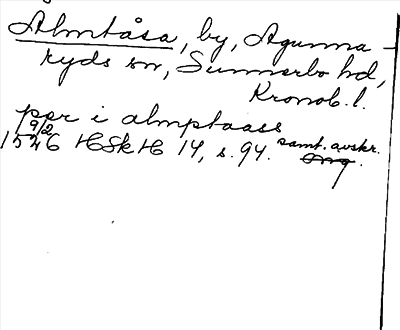 Almtåsa, by, Agunna-
ryds sn, Sunnerbo hd,
Kronob. l.
ppr i almptaass
9/2
1526 HSkH 14, s. 94. samt. avskr.